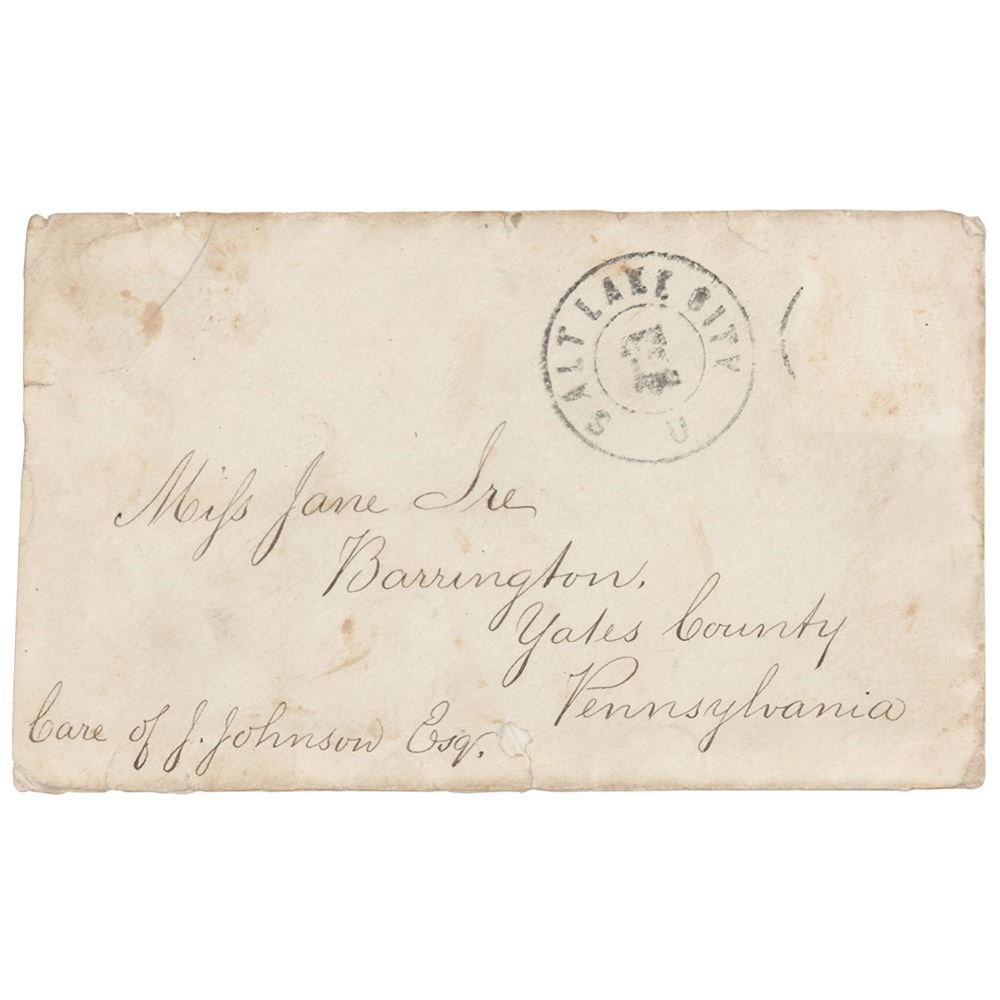 SALT LAKE CITY
U
Miss Jane Ire
Barrington.
Yates County
Pennsylvania
Care of J. Johnson Esqr.